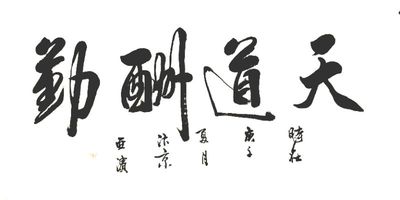 天道酬勤
時在
庚子
夏月
汴京
亚濱